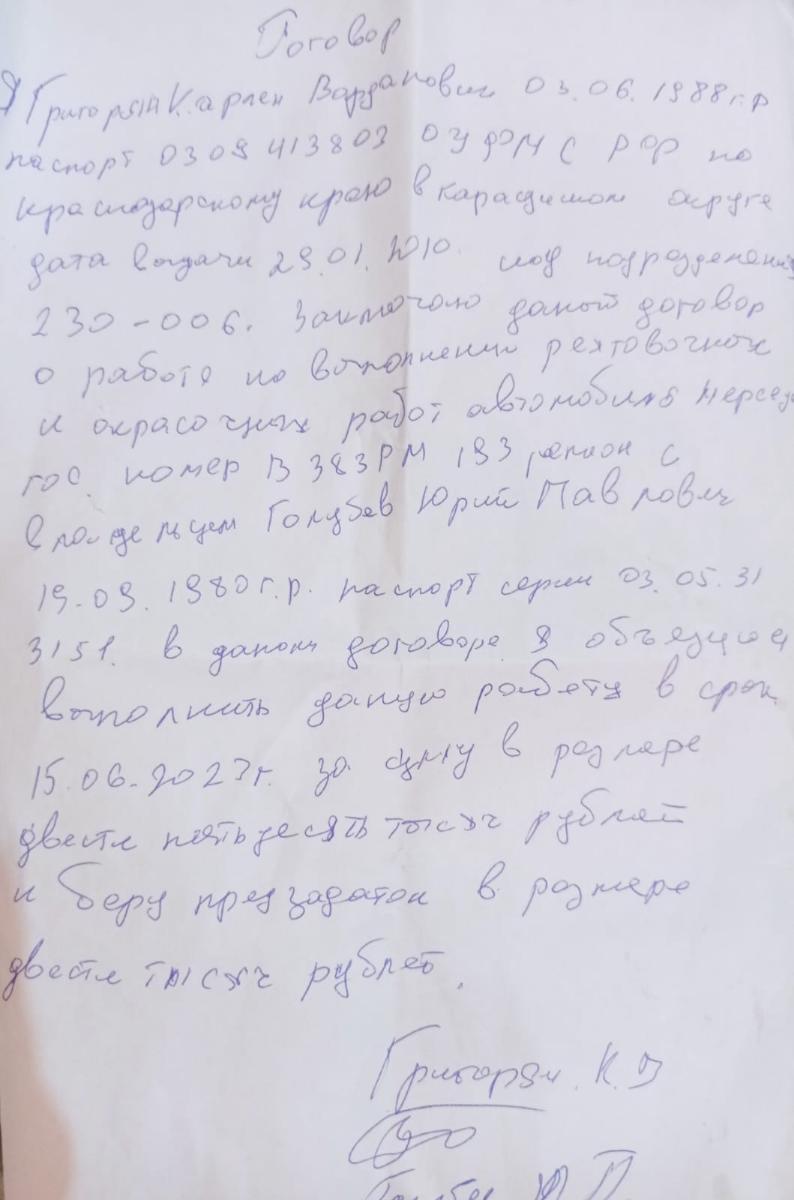 Договор
Я Григорян Карлен Варданович 03.06.1988г.р
паспорт 0309 413803 ОУФМС РФ по
Краснодарскому краю в Карасунском округе
дата выдачи 29.01.2010 код подразделения
230-006. Заключаю даный договор
о работе по выполнению рехтовочных
и окрасочных работ автомобиля мерседе
гос. номер В 383РМ 193 регион с
владельцем Голубев Юрий Павлович
19.09.1980г.р. паспорт серии 03.05.31
3151. в даном договоре я объязуюся
выполнить данную работу в срок
15.06.2023г. за суму в размере
двести пятьдесять тысяч рублей
и беру предзадаток в размере
двести тысяч рублей.
Григорян. К.В
Голубев Ю П